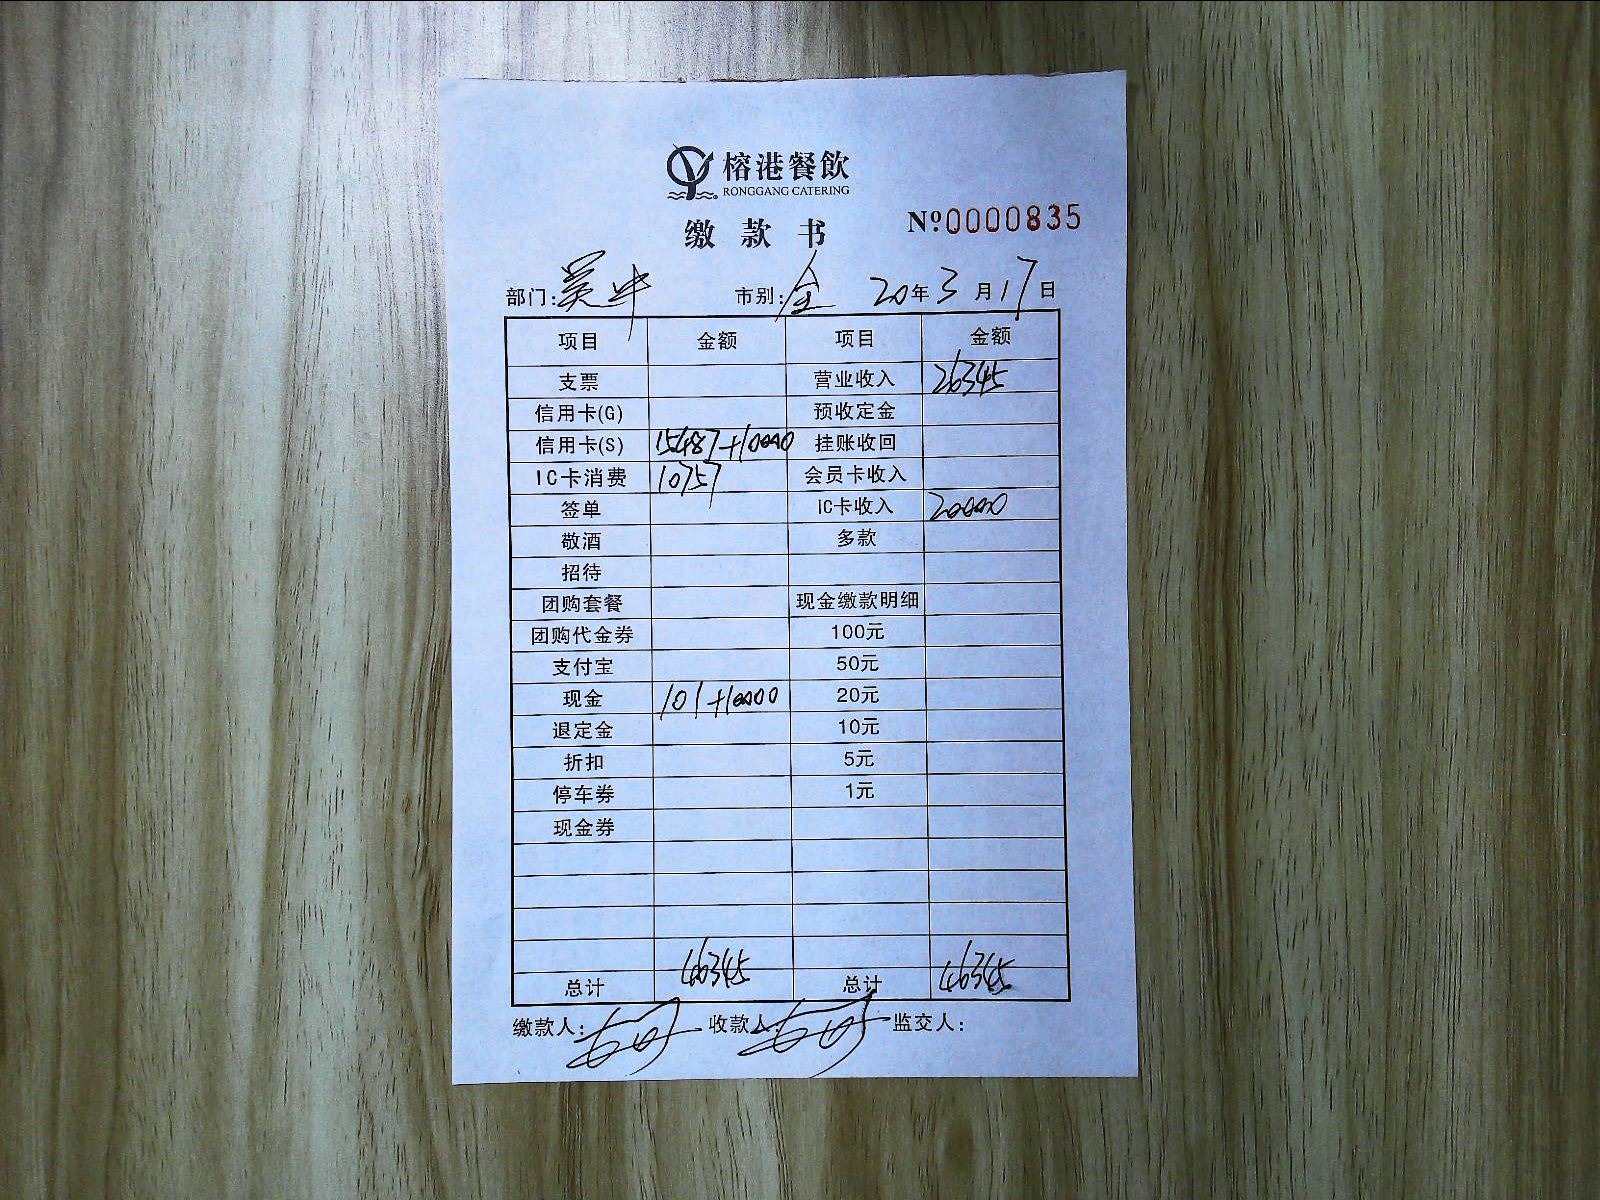 榕港餐飲
RONGGANG CATERING
缴款书 №0000835
部门: 市别:全 20年3月17日
项目 金额 项目 金额
支票 营业收入 26345
信用卡(G) 预收定金
信用卡(S) 15487+10000 挂账收回
IC卡消费 10757 会员卡收入
签单 IC卡收入 20000
敬酒 多款
招待
团购套餐 现金缴款明细
团购代金券 100元
支付宝 50元
现金 101+10000 20元
退定金 10元
折扣 5元
停车券 1元
现金券
总计 46345 总计 46345
缴款人: 收款人 监交人: